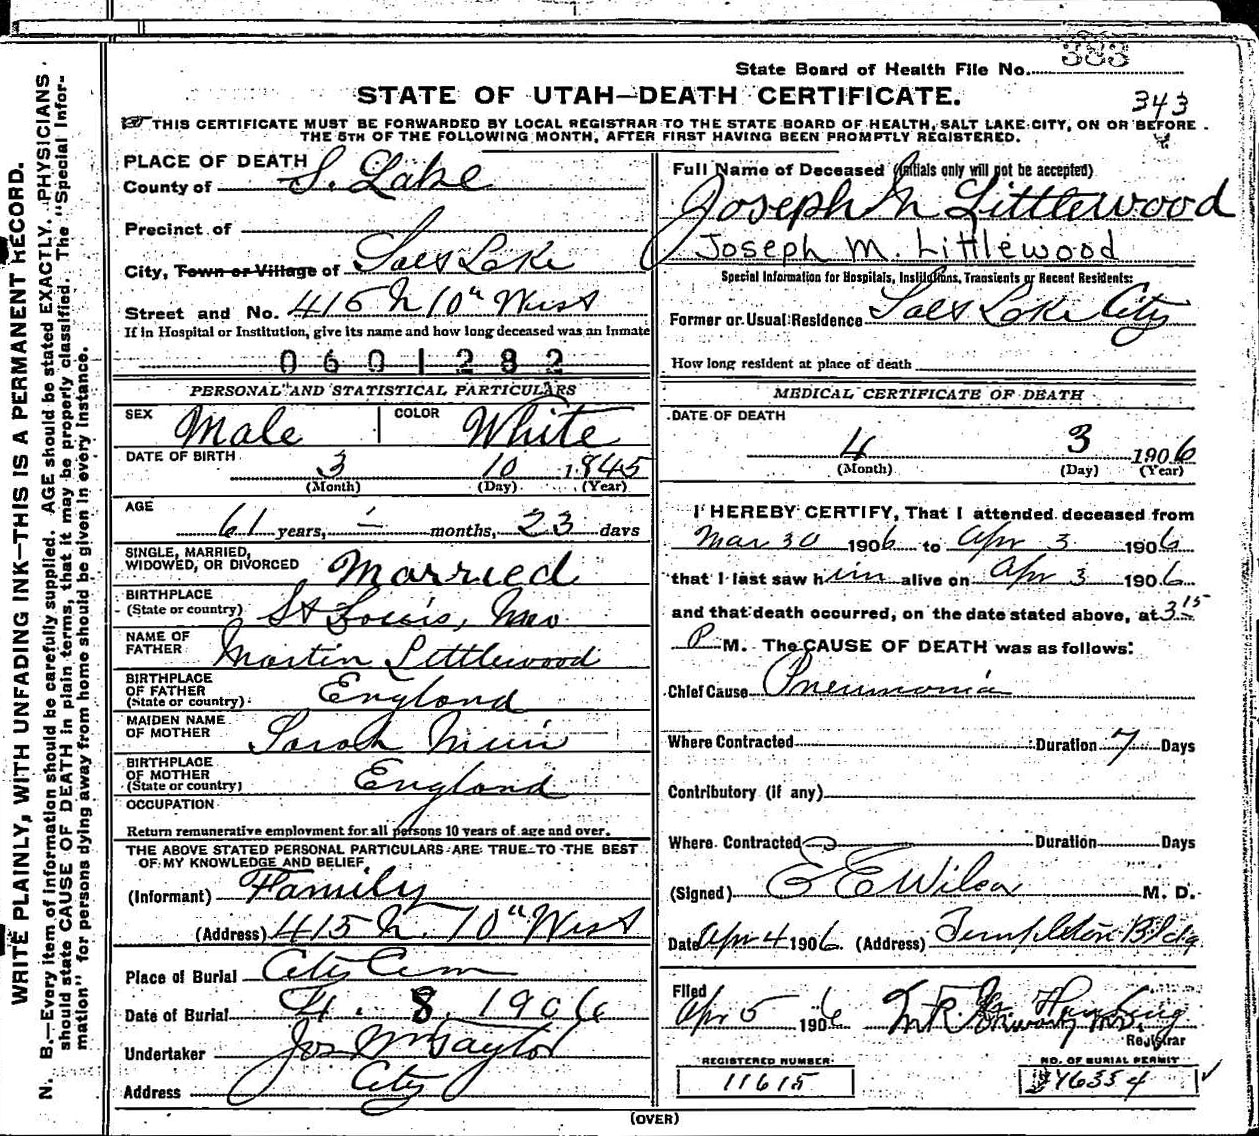 State Board of Health File No. 383
STATE OF UTAH—DEATH CERTIFICATE.
343
THIS CERTIFICATE MUST BE FORWARDED BY LOCAL REGISTRAR TO THE STATE BOARD OF HEALTH, SALT LAKE CITY, ON OR BEFORE
THE 5TH OF THE FOLLOWING MONTH, AFTER FIRST HAVING BEEN PROMPTLY REGISTERED.
WRITE PLAINLY, WITH UNFADING INK—THIS IS A PERMANENT RECORD.
N. B.—Every item of information should be carefully supplied. AGE should be stated EXACTLY. PHYSICIANS
should state CAUSE OF DEATH in plain terms, that it may be properly classified. The "Special Infor-
mation" for persons dying away from home should be given in every instance.
PLACE OF DEATH
County of S. Lake
Precinct of
City, Town or Village of Salt Lake
Street and No. 415 N 10" West
If in Hospital or Institution, give its name and how long deceased was an Inmate
0601282
PERSONAL AND STATISTICAL PARTICULARS
SEX Male COLOR White
DATE OF BIRTH 3 10 1845
(Month) (Day) (Year)
AGE 61 years, - months, 23 days
SINGLE, MARRIED,
WIDOWED, OR DIVORCED Married
BIRTHPLACE
(State or country) St Louis, Mo
NAME OF
FATHER Martin Littlewood
BIRTHPLACE
OF FATHER
(State or country) England
MAIDEN NAME
OF MOTHER Sarah
BIRTHPLACE
OF MOTHER
(State or country) England
OCCUPATION
Return remunerative employment for all persons 10 years of age and over.
THE ABOVE STATED PERSONAL PARTICULARS ARE TRUE TO THE BEST
OF MY KNOWLEDGE AND BELIEF
(Informant) Family
(Address) 415 N. 10" West
Place of Burial City Cem
Date of Burial 4. 8. 1906
Undertaker Jos Wm Taylor
Address City
Full Name of Deceased (Initials only will not be accepted)
Joseph M Littlewood
Joseph M. Littlewood
Special Information for Hospitals, Institutions, Transients or Recent Residents:
Former or Usual Residence Salt Lake City
How long resident at place of death
MEDICAL CERTIFICATE OF DEATH
DATE OF DEATH
4 3 1906
(Month) (Day) (Year)
I HEREBY CERTIFY, That I attended deceased from
Mar 30 1906 to Apr 3 1906
that I last saw him alive on Apr 3 1906
and that death occurred, on the date stated above, at 3 15
P M. The CAUSE OF DEATH was as follows:
Chief Cause Pneumonia
Where Contracted Duration 7 Days
Contributory (if any)
Where Contracted Duration Days
(Signed) E E Wilson M. D.
Date Apr 4 1906. (Address) Templeton Bldg
Filed
Apr 5 1906
Registrar
REGISTERED NUMBER
11615
NO. OF BURIAL PERMIT
(OVER)